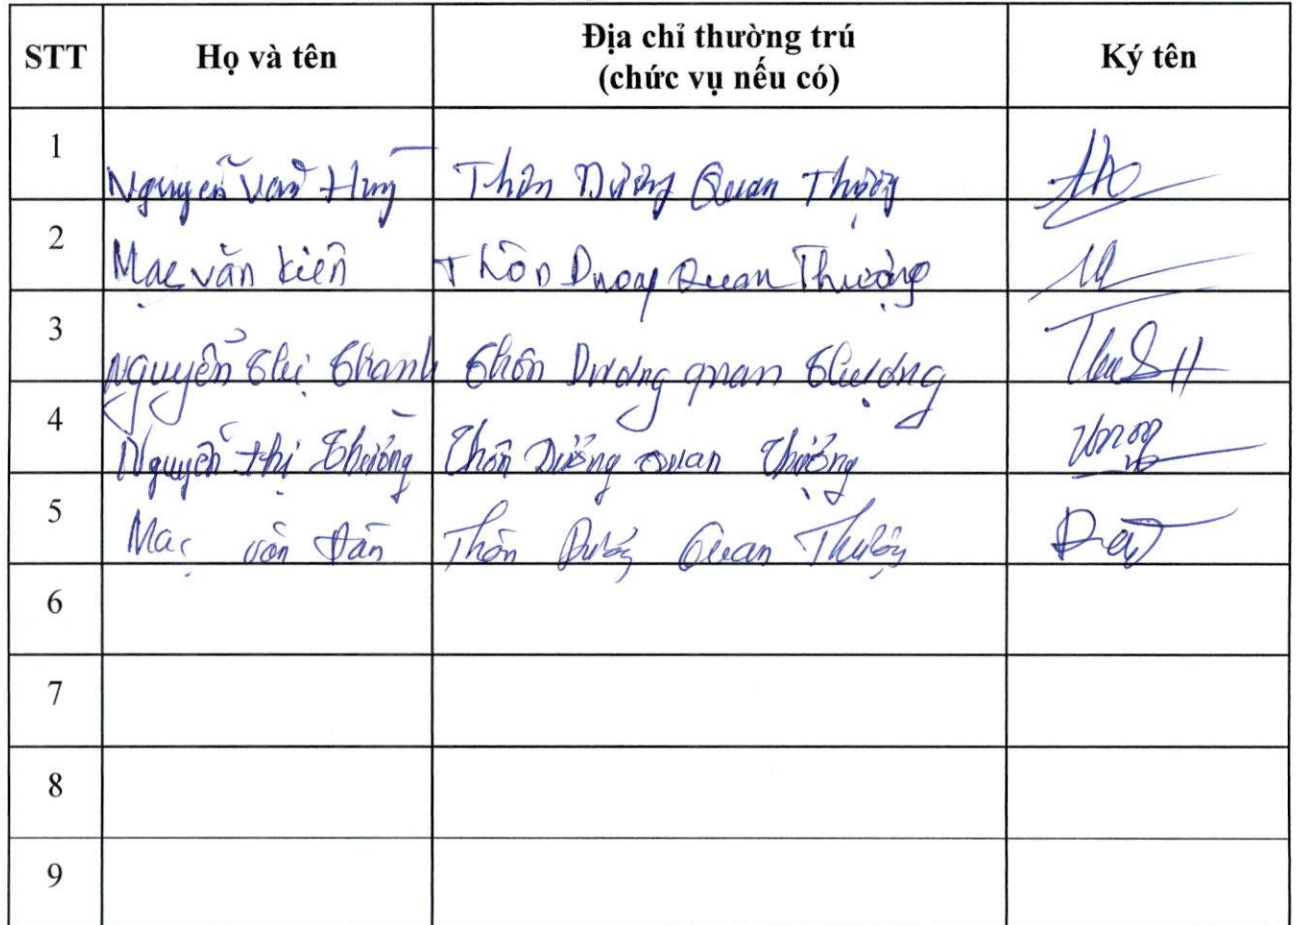 STT Họ và tên Địa chỉ thường trú (chức vụ nếu có) Ký tên
1 Nguyễn Văn Hùng Thôn Dương Quan Thượng
2 Mạc văn kiên Thôn Dương Quan Thượng
3 Nguyễn Thị Thanh Thôn Dương quan Thượng
4 Nguyễn thị Thường Thôn Dương quan Thượng
5 Mạc văn Thôn Dương Quan Thượng
6
7
8
9